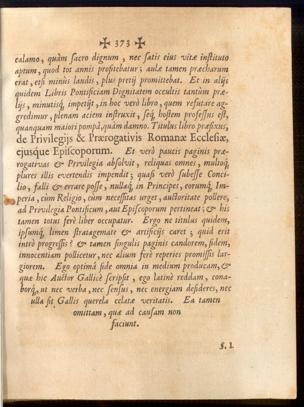 ✠ 373 ✠
calamo, quàm sacro dignum, nec satis eius vitæ instituto
aptum, quod tot annis profitebatur; aulæ tamen præcharum
erat, etsi minùs landis, plus pretij promittebat. Et in alijs
quidem Libris Pontificiam Dignitatem occultis tantùm præ-
lijs, minutisq́; impetijt, in hoc verò libro, quem refutare ag-
gredimur, plenam aciem instruxit, seq́; hostem professus est,
quanquam maiori pompâ, quàm damno. Titulus libro præfixus,
de Privilegijs & Prærogativis Romanæ Ecclesiæ,
ejusque Episcoporum. Et verò paucis paginis præ-
rogativas & Privilegia absolvit, reliquas omnes, multoq́;
plures illis evertendis impendit; quasi verò subesse Conci-
lio, falli & errare posse, nullaq́; in Principes, eorumq́; Im-
peria, cùm Religio, cùm necessitas urget, auctoritate pollere,
ad Privilegia Pontificum, aut Episcoporum pertineat; & his
tamen totus ferè liber occupatur. Ergo ne titulus quidem,
ipsumq́; limen stratagemate & artificijs caret; quid erit
intrò progressis? & tamen singulis paginis candorem, fidem,
innocentiam pollicetur, nec alium ferè reperies promissis lar-
giorem. Ego optimâ fide omnia in medium producam, &
quæ hic Auctor Gallicè scripsit, ego latinè reddam, cona-
borq́; ut nec verba, nec sensus, nec energiam desideres, nec
ulla sit Gallis querela celatæ veritatis. Ea tamen
omittam, quæ ad causam non
faciunt.
§. I.